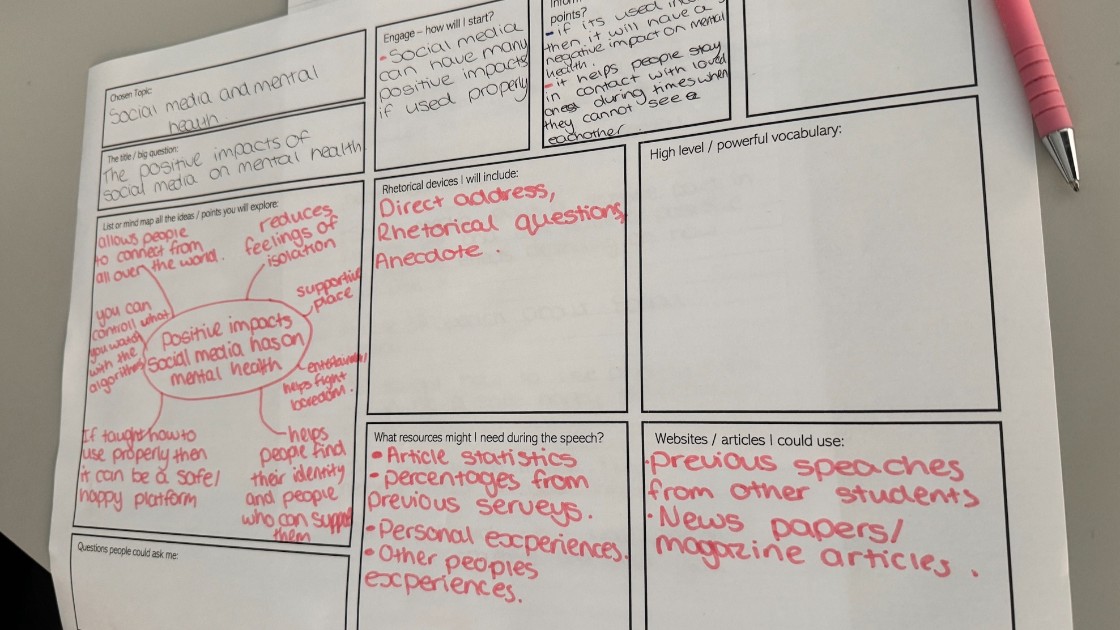 Chosen Topic:
Social media and mental
health.
The title / big question:
The positive impacts of
social media on mental health
List or mind map all the ideas / points you will explore:
allows people
to connect from
all over the world.
reduces
feelings of
isolation
supportive
place
you can
controll what
you watch
with the
algorithm
Positive impacts
Social media has on
mental health
helps fight
boredom.
If taught how to
use properly then
it can be a safe/
happy platform
helps
people find
their identity
and people
who can support
them
Questions people could ask me:
Engage – how will I start?
- Social media
can have many
positive impacts
if used properly
points?
- if its used
then it will have a
negative impact on mental
health.
- it helps people stay
in contact with loved
ones during times when
they cannot see
eachother.
Rhetorical devices I will include:
Direct address,
Rhetorical questions,
Anecdote.
High level / powerful vocabulary:
What resources might I need during the speech?
• Article statistics
• percentages from
previous serveys.
• Personal experiences.
• Other peoples
experiences.
Websites / articles I could use:
• previous speaches
from other students
• News papers/
magazine articles.